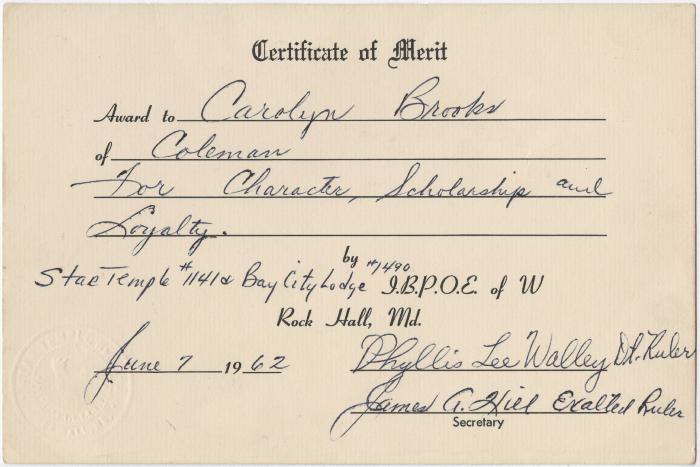 Certificate of Merit
Award to Carolyn Brooks
of Coleman
For Character, Scholarship and
Loyalty.
by
Star Temple #1141 & Bay City Lodge #1490 I.B.P.O.E. of W
Rock Hall, Md.
June 7 1962 Phyllis Lee Walley Dt. Ruler
James A. Hill Exalted Ruler
Secretary